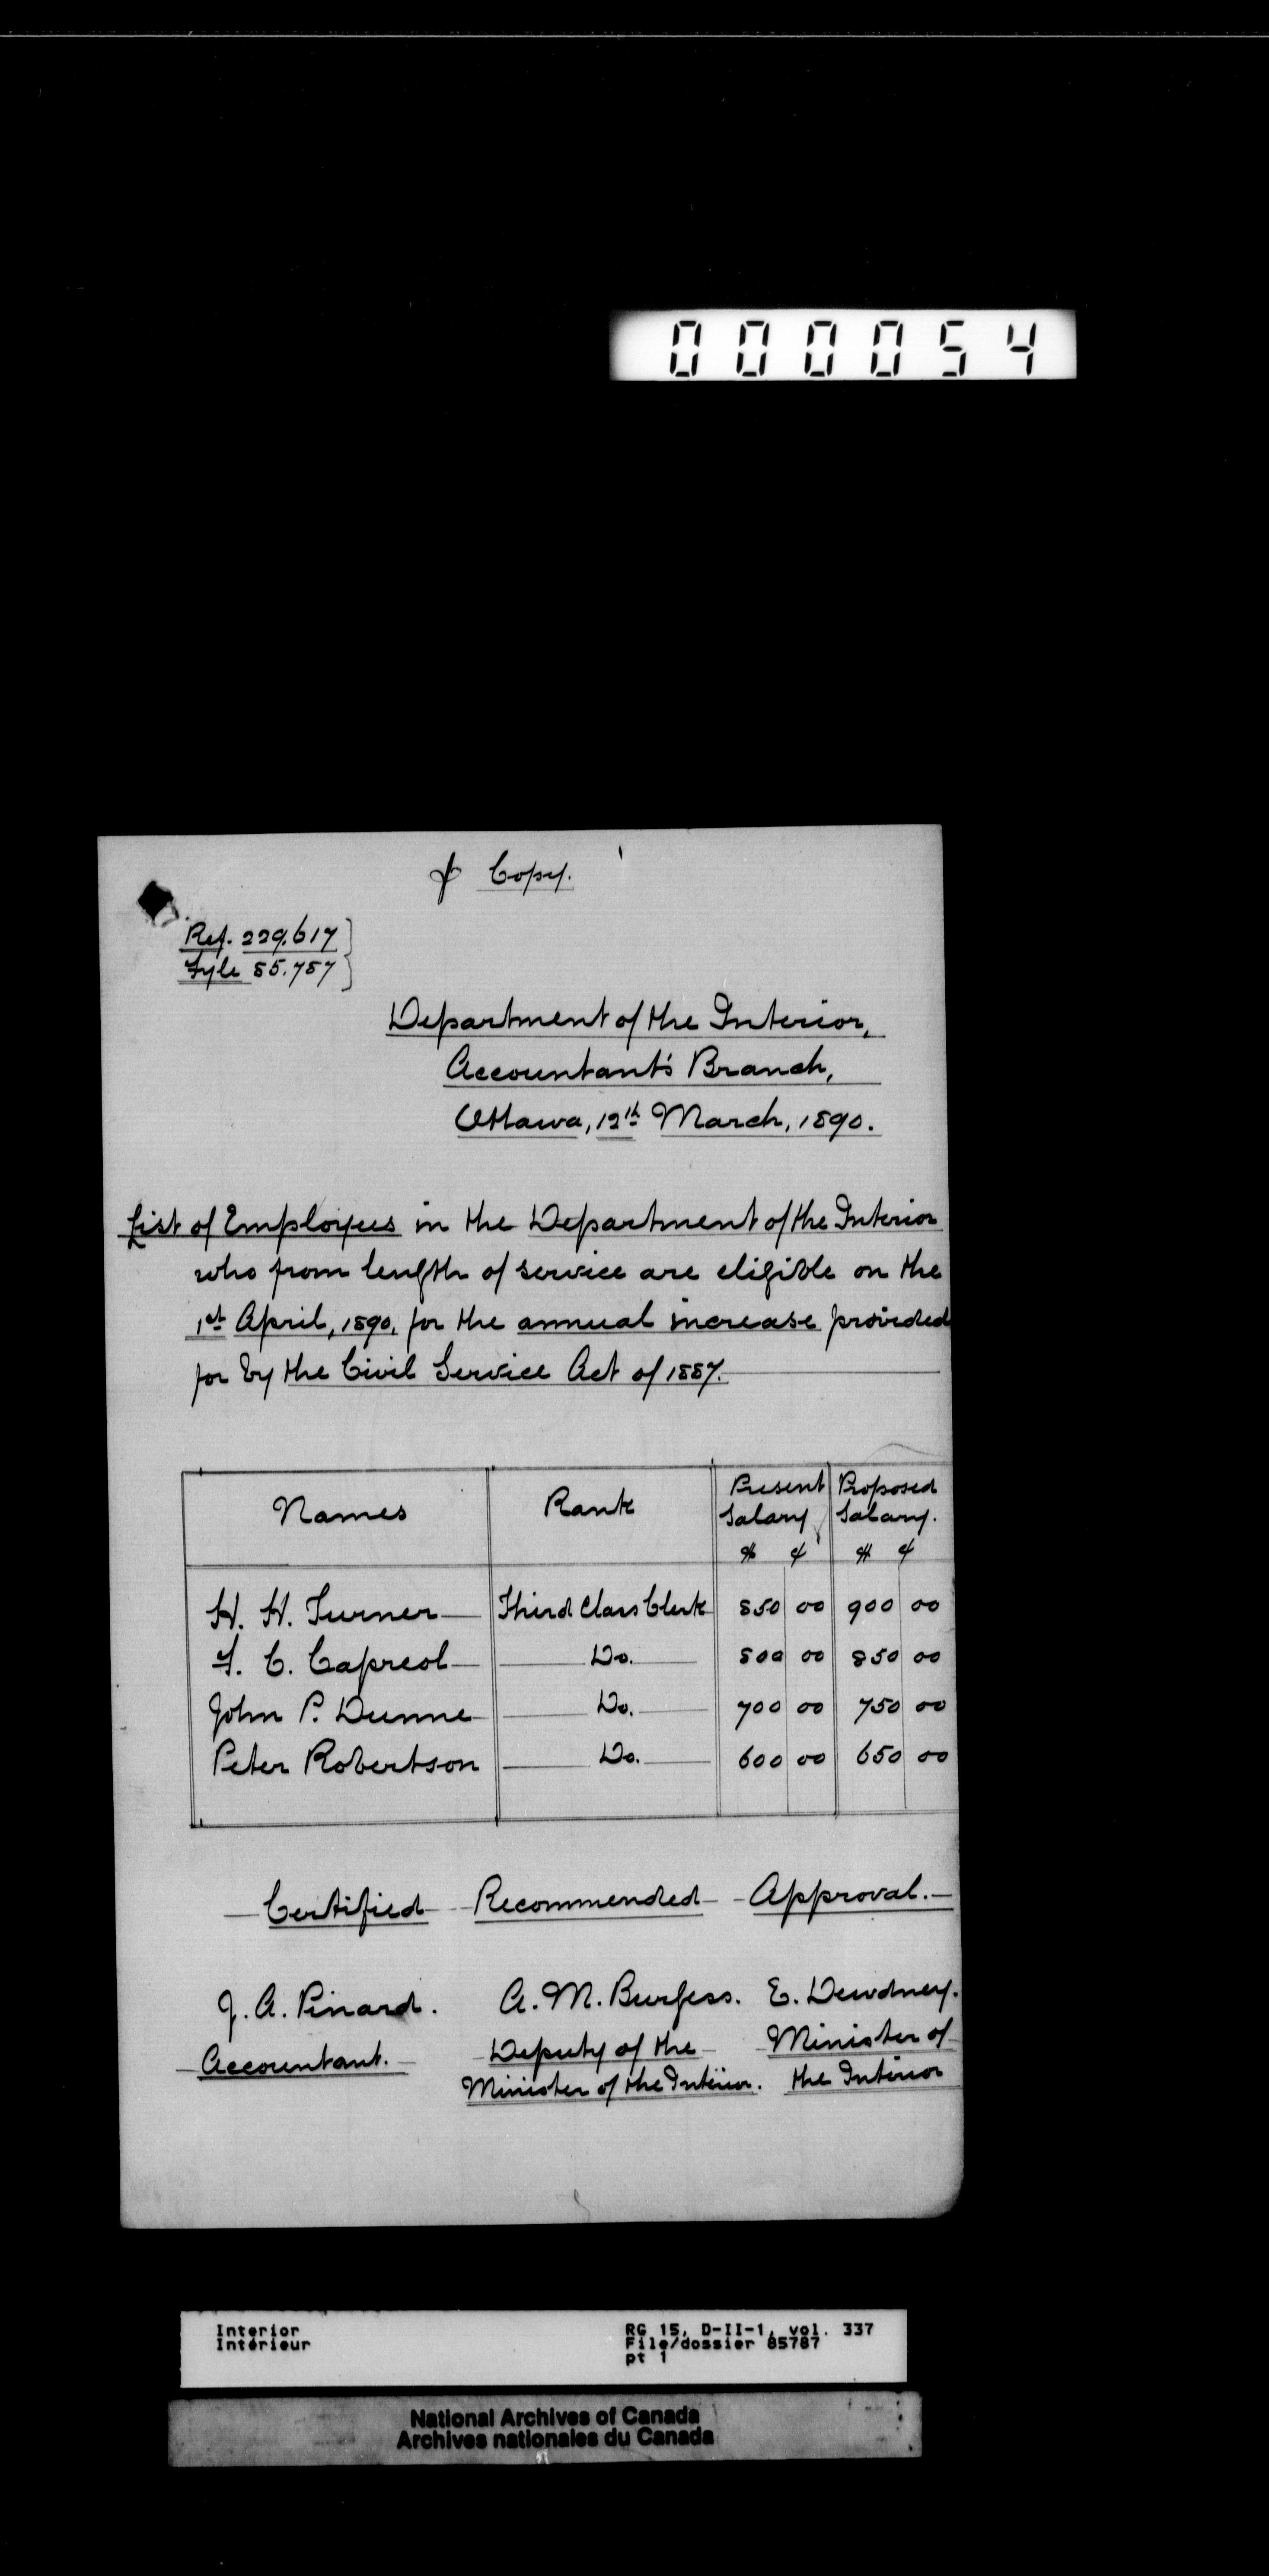 000054
Copy.
Ref. 229.617
Fyle 85.787
Department of the Interior,
Accountant's Branch,
Ottawa, 12th March, 1890.
List of Employees in the Department of the Interior
who from length of service are eligible on the
1st April, 1890, for the annual increase provided
for by the Civil Service Act of 1887.
Names Rank Present Salary Proposed Salary.
$ ¢ $ ¢
H. H. Turner Third Class Clerk 850 00 900 00
F. C. Capreol Do. 800 00 850 00
John P. Dunne Do. 700 00 750 00
Peter Robertson Do. 600 00 650 00
Certified Recommended Approval.
J. A. Pinard. A. M. Burgess. E. Dewdney.
Accountant. Deputy of the Minister of
Minister of the Interior. the Interior
Interior RG 15, D-II-1, vol. 337
Intérieur File/dossier 85787
pt 1
National Archives of Canada
Archives nationales du Canada